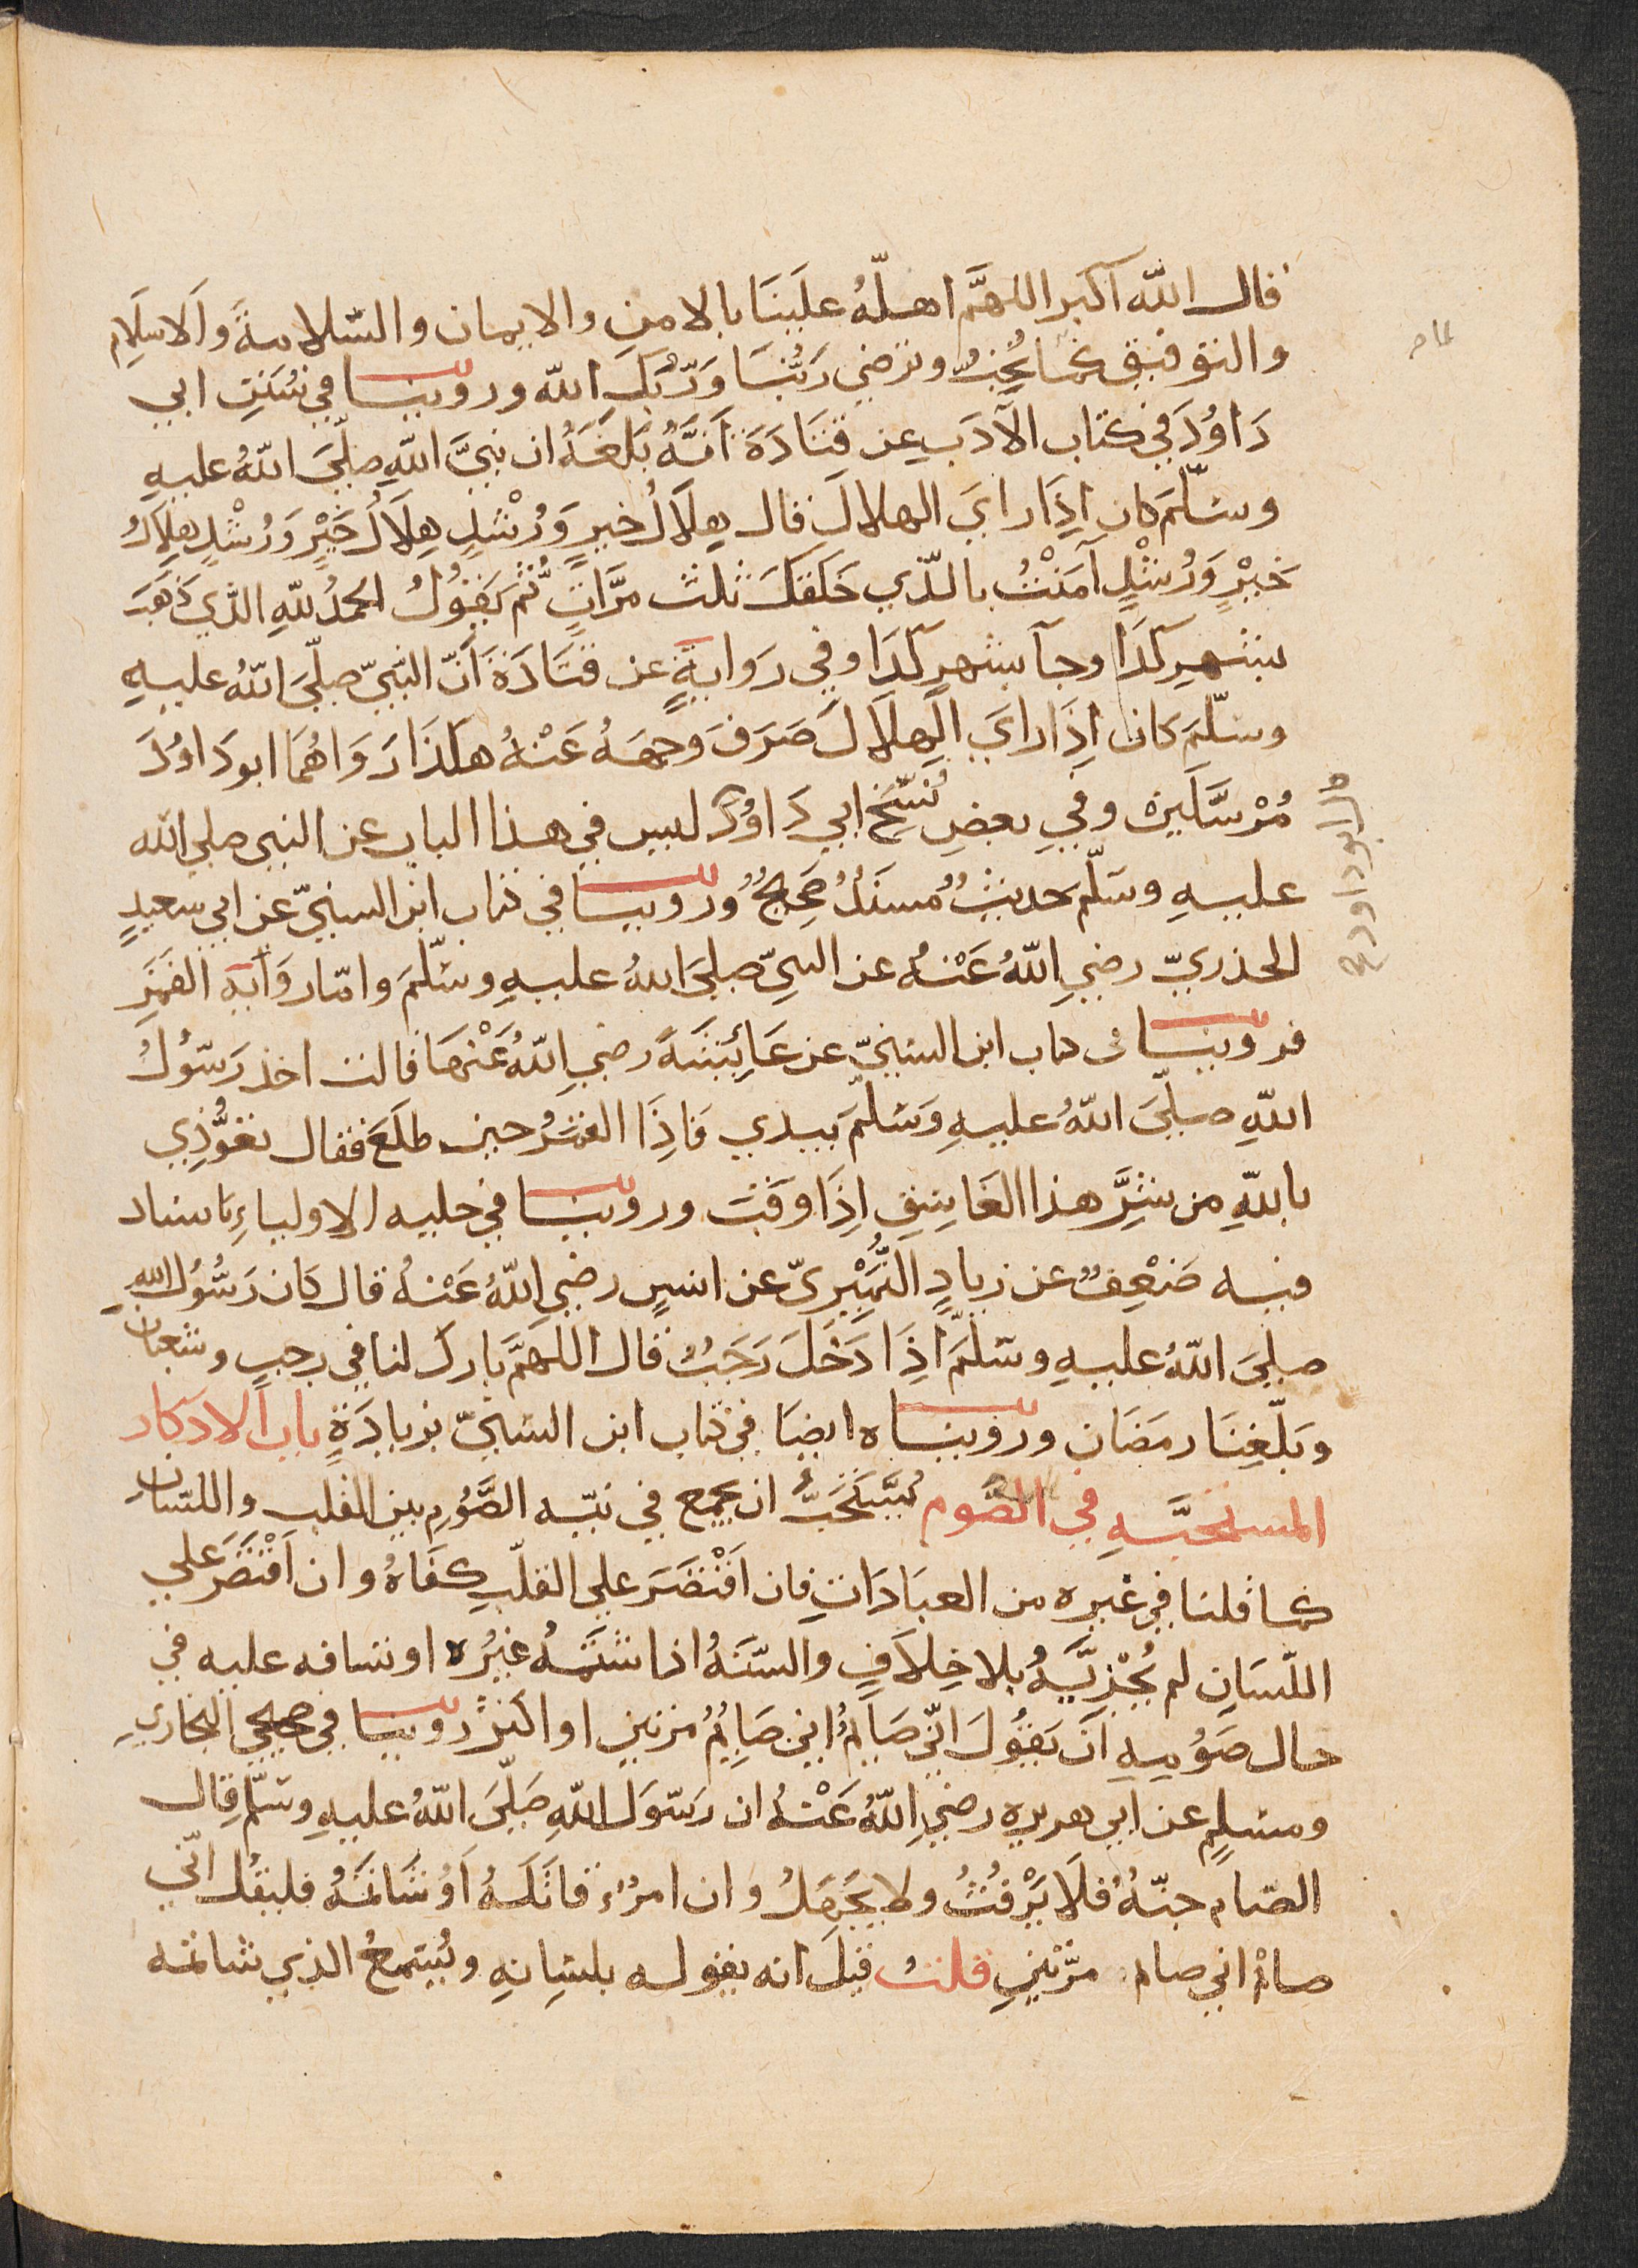 قال الله أكبر اللهمَّ اهلّهُ علَينَا بالامنِ والايمان والسّلامةَ والاسلَامِ
والتوفيق كما تُحِبُّ وترضي رَبُّنَا وَرَبُّكَ الله وروينا في سُنَنِ ابي
دَاوُدَ في كتاب الآدَبِ عن قتَادَةَ أنَّهُ بَلَغَهُ ان نبيَّ اللهِ صلّيَ اللهُ عليهِ
وسَلّمَ كان اِذَا رايَ الهلالَ قال هِلَالُ خيرٍ وَرُشْدٍ هِلَالُ خَيْرٍ وَرُشْدٍ هِلَالُ
خَيْرٍ وَرُشْدٍ آمَنْتُ بالّذي خَلَقَكَ ثلث مرَّاتٍ ثُمّ يَقُولُ الحمدُ للهِ الذّي ذَهَبَ
بشهرِ كَذَا وجآ بشهرِ كَذَا وفي رَوايةٍ عن قتَادَةَ أنّ النّبيّ صلّيَ اللهُ عليهِ
وسلّمَ كان اِذَا رايَ الهِلالَ صَرَفَ وجهَهُ عَنْهُ هكذَا رَوَاهُمَا ابو دَاوُدَ
مُرْسَلَينَ وفي بعضِ نُسَخِ ابي دَاوُدَ ليس في هذا الباب عن النبي صلي الله
عليهِ وسَلّم حديثٌ مُسنَدٌ صحِيحٌ وروينا في كتاب ابن السنيّ عن ابي سعيدٍ
الخذريّ رضيِ اللهُ عَنْهُ عن النبيّ صليَ اللهُ عليهِ وسَلّمَ وامّا رِوَايَة القَمَرِ
فروينا في كتاب ابن السّنيّ عن عَائِشَةَ رضيِ اللهُ عَنْهَا قالت اخذ رَسُولُ
اللهِ صلّيَ اللهُ عليهِ وَسَلّمَ بيدي فَاِذَا القمَرُ حين طلَعَ فقال تعَوُّذِي
باللهِ من شرِّ هذا الغَاسِقِ اِذَا وَقَبَ وروينا في حليه الاولياءِ باسناد
فيه ضَعْفٌ عن زيادٍ النُّمَيْريّ عن انسٍ رضيِ اللهُ عَنْهُ قال كَان رَسُولُ اللهِ
صلّيَ اللهُ عليهِ وسَلّمَ اِذَا دَخَلَ رَجَبُ قال اللهمَّ بارك لنا في رجبٍ وشعبان
وبَلّغنَا رمضَان وروينَاه ايضَا في كتاب ابن السّنيّ بزيادَةٍ باب الاذكار
المستحبَّهِ في الصّوم يُسْتَحَبُّ ان يجمع في نيّه الصَّوْمِ بين القلب واللّسان
كما قلنا في غيره من العبَادَاتِ فان اقْتَصَرَ علي القلبِ كفَاهُ وان اقْتَصَرَ علي
اللّسَانِ لم يُجْزِيَهُ بلا خِلَافٍ والسّنَهُ اذا شتَمَهُ غيْرُه او تسافه عليه في
حال صَوْمِهِ أنَ يَقُولَ انّي صَايمُ اني صَايمُ مرتين او اكثرَ روينا في صحيحي البخاريِ
ومسلمٍ عن ابي هريره رضيِ اللهُ عَنْهُ ان رَسُولَ اللهِ صَلّيَ اللهُ عليهِ وسَلّمِ قال
الصّيام جنّهُ فلَا يَرْفُثُ ولا يَجْهَلُ وان امرُء قاتَلَهُ اَوْ شَاتمَهُ فليَقُل انّي
صائم اني صايم مرّتينِ قلت قيلَ انه يقوله بلسَانِهِ ويُسمعُ الذي شاتمه
قال ابو داود